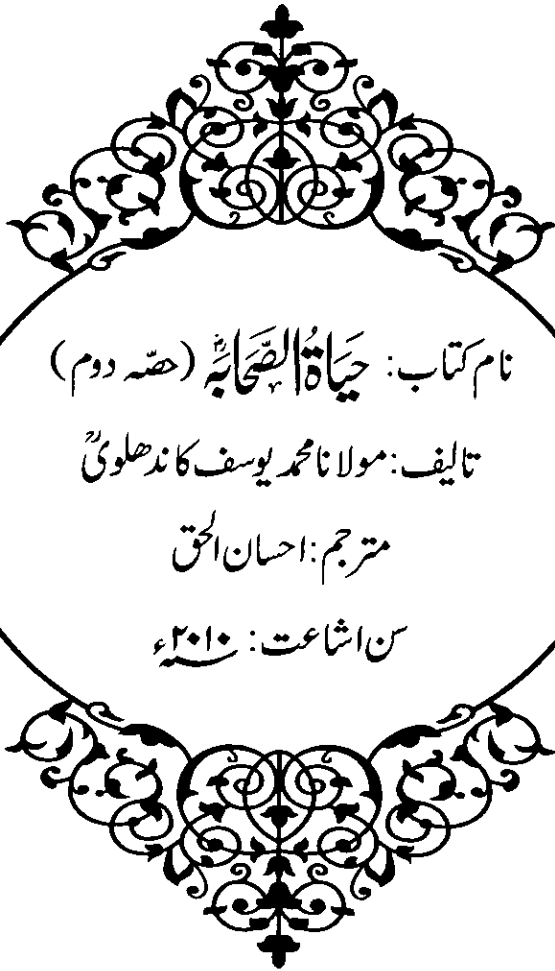 نام کتاب: حَيَاةُ الصَّحَابَةؓ (حصّہ دوم)
تالیف: مولانا محمد یوسف کاندھلویؒ
مترجم: احسان الحق
سن اشاعت: ۲۰۱۰ء